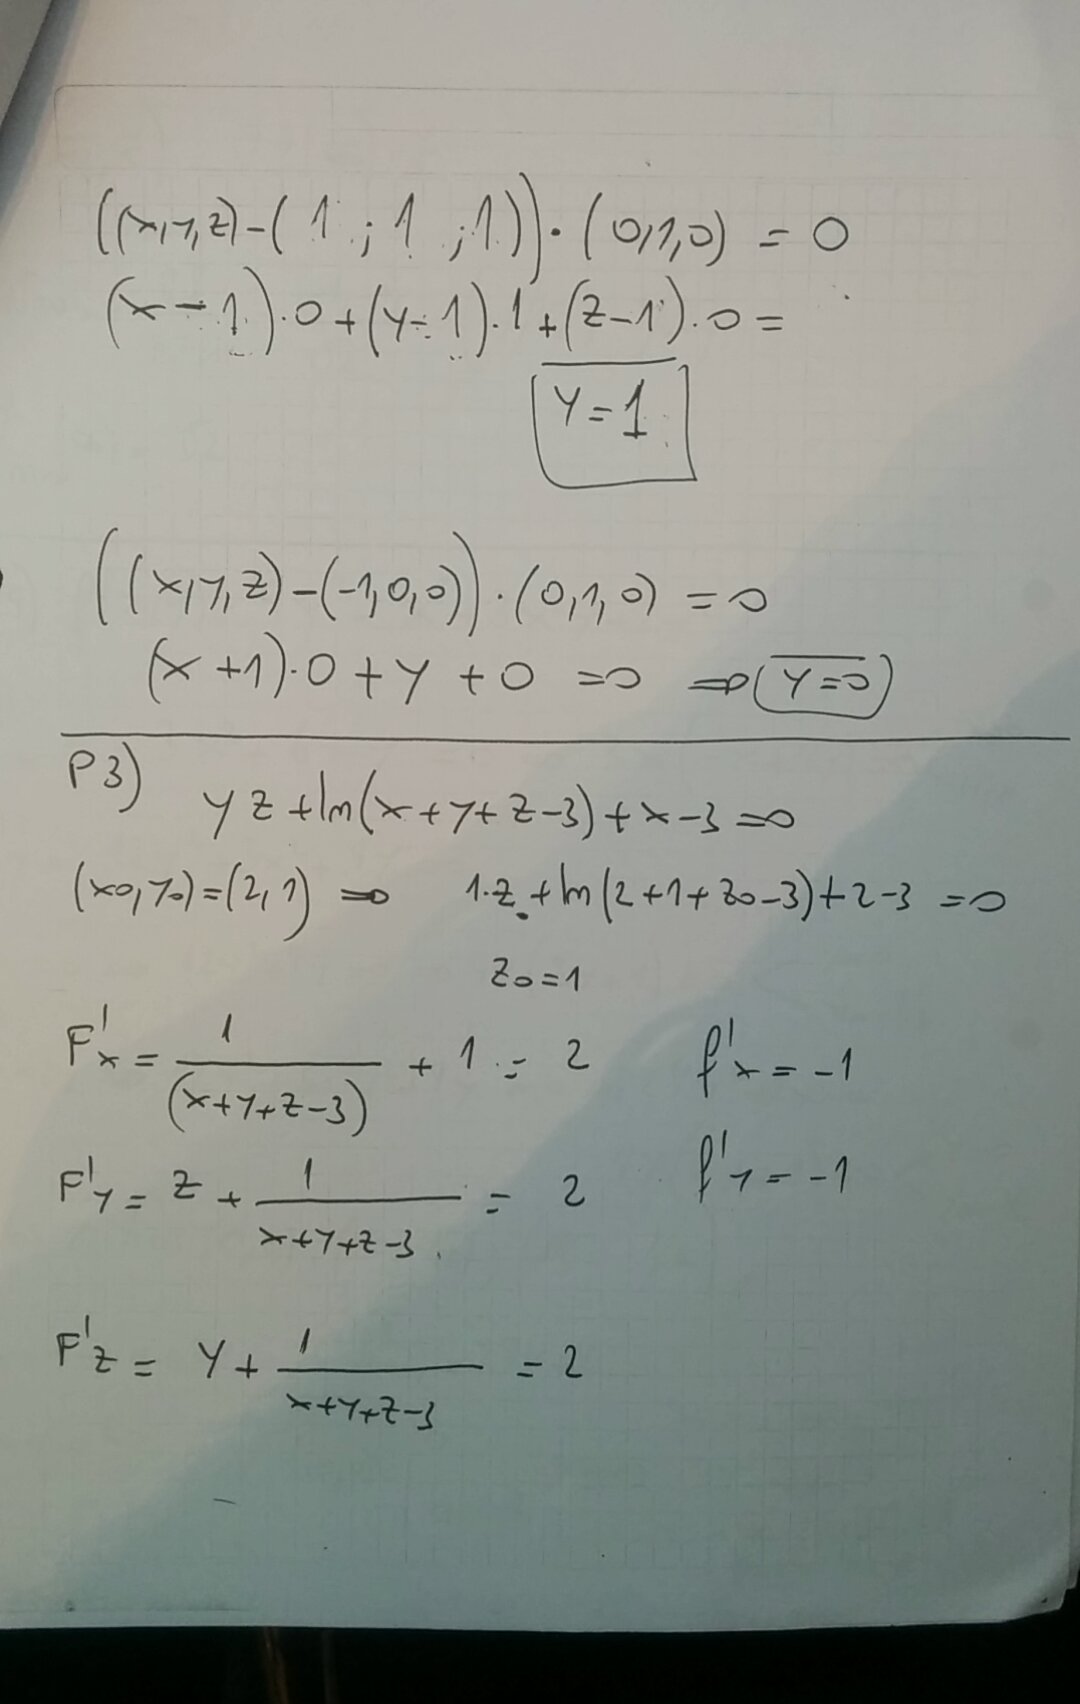 ((x,y,z)-(1;1;1))·(0,1,0) = 0
(x-1)·0+(y-1)·1+(z-1)·0=
y=1
((x,y,z)-(-1,0,0))·(0,1,0) =0
(x+1)·0+y+0 =0 ⇒ y=0
P3) yz+ln(x+y+z-3)+x-3=0
(x0,y0)=(2,1) ⇒ 1·z0+ln(2+1+z0-3)+2-3 =0
z0=1
F'x = 1/(x+y+z-3) + 1 = 2 f'x=-1
F'y = z + 1/x+y+z-3 = 2 f'y=-1
F'z = y+ 1/x+y+z-3 = 2